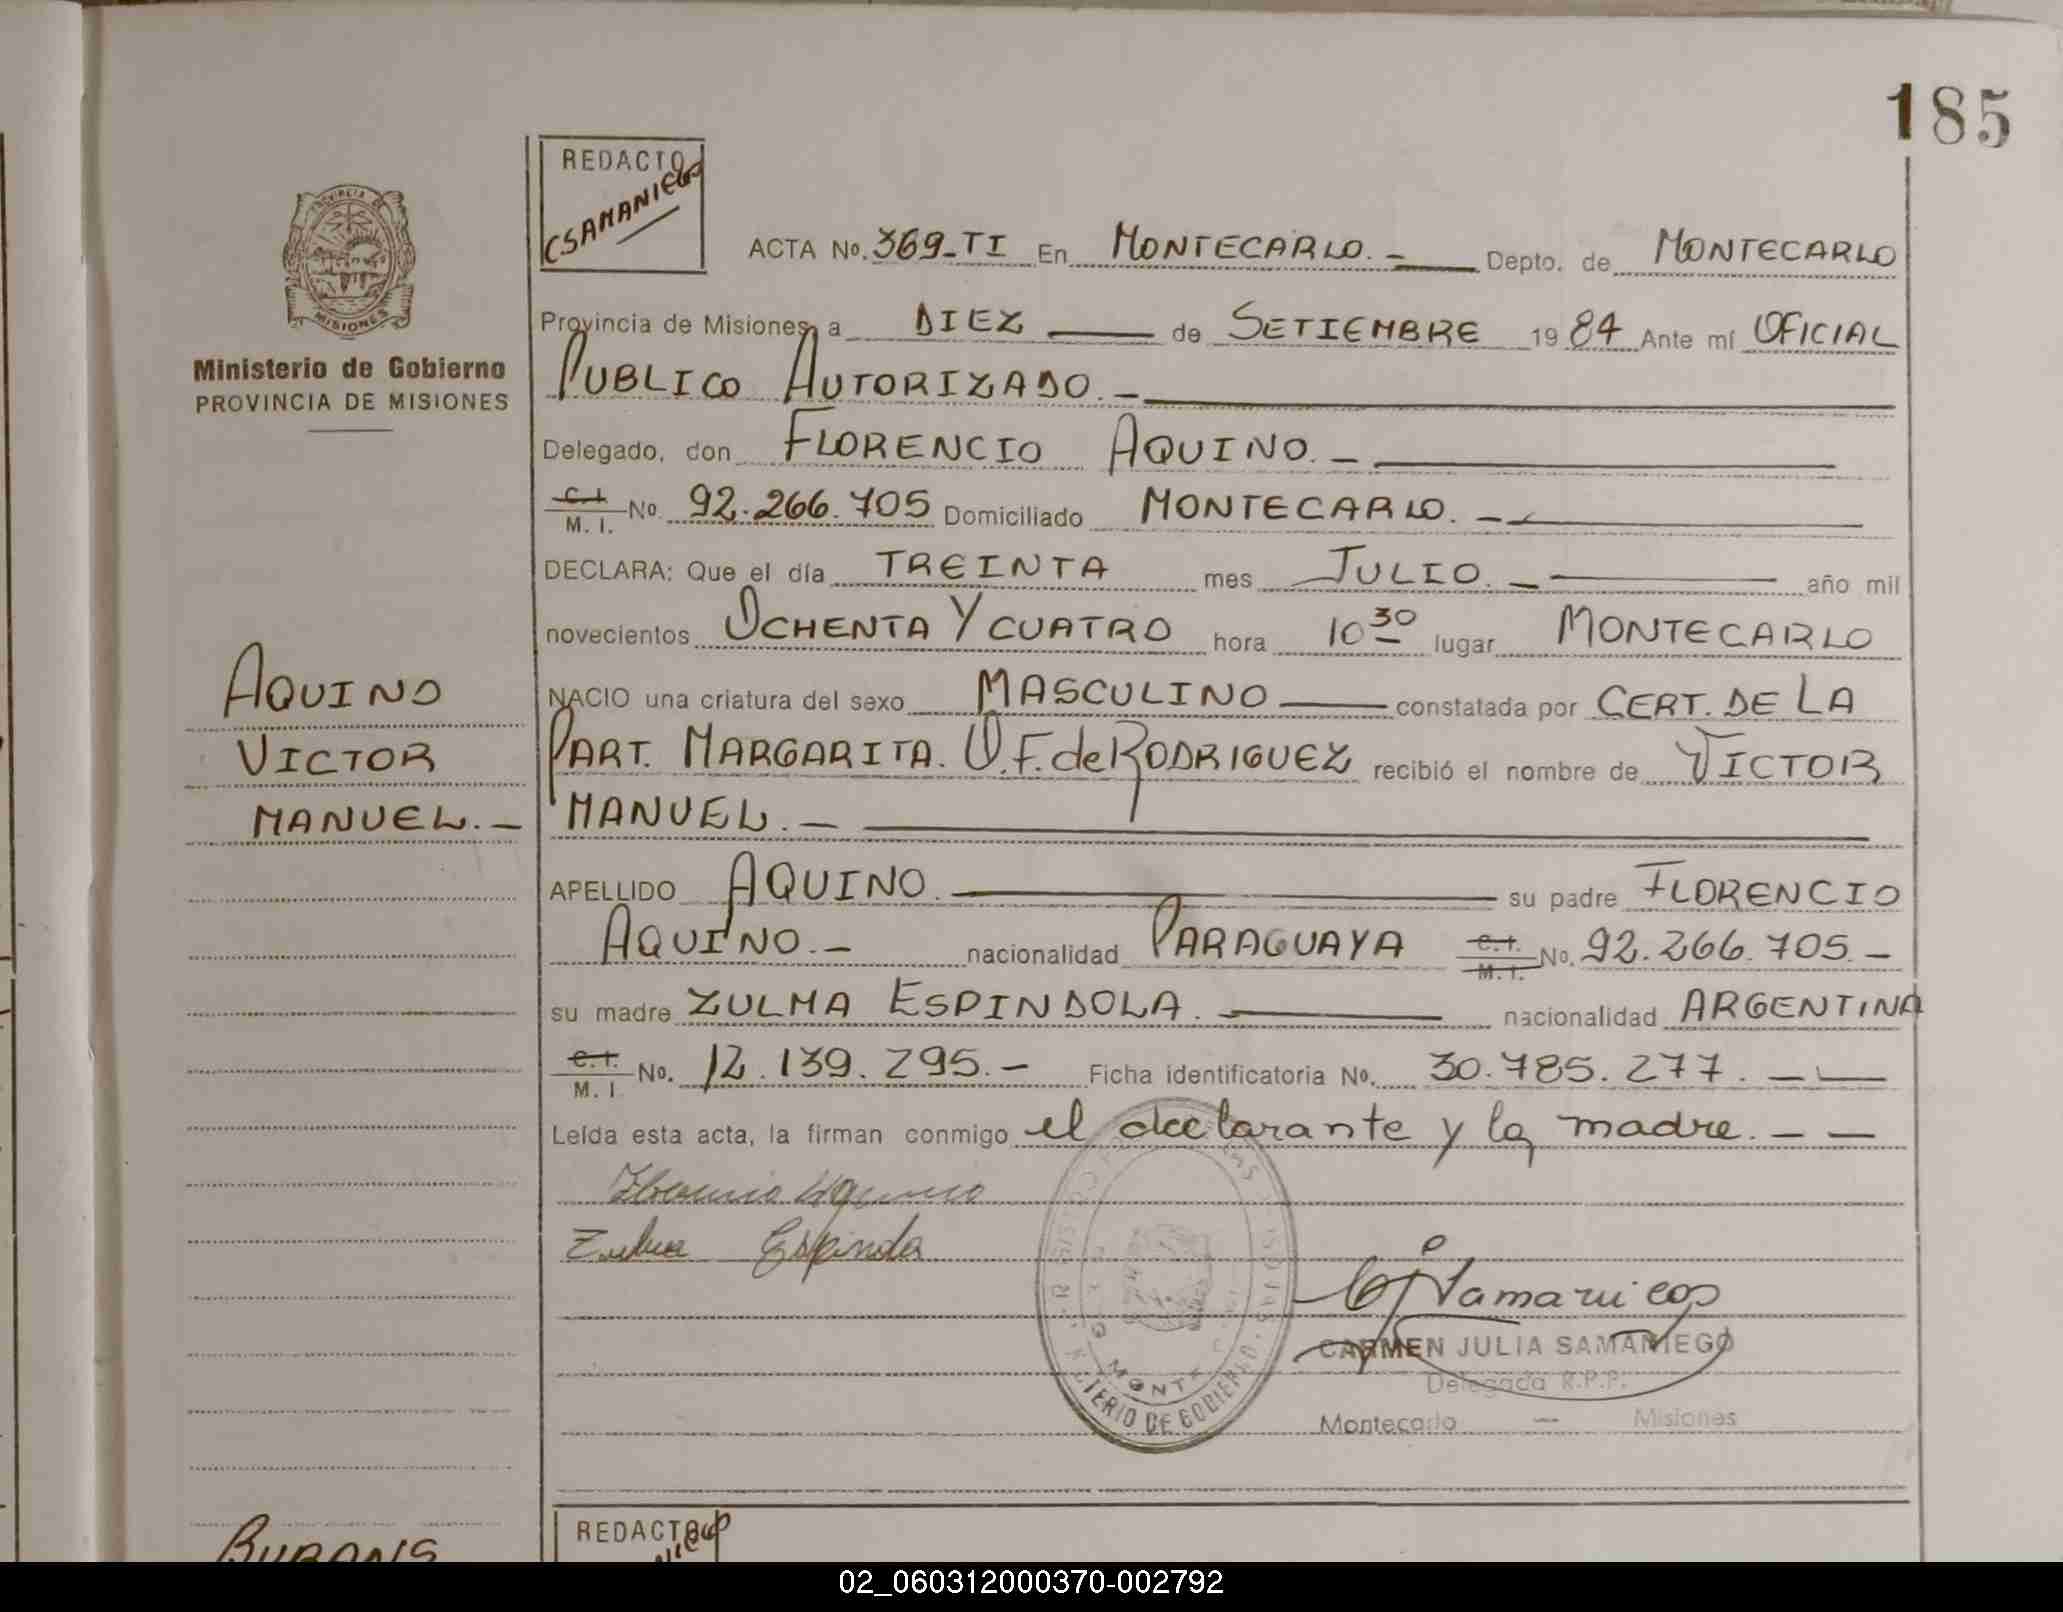 185
REDACTO
CSAMANIEGO
PROVINCIA DE
MISIONES
Ministerio de Gobierno
PROVINCIA DE MISIONES
ACTA No. 369-TI En MONTECARLO.- Depto. de MONTECARLO
Provincia de Misiones, a DIEZ de SETIEMBRE 1984 Ante mí OFICIAL
PUBLICO AUTORIZADO.-
Delegado, don FLORENCIO AQUINO.-
C.I. M. I. No. 92.266.705 Domiciliado MONTECARLO.-
DECLARA: Que el día TREINTA mes JULIO.- año mil
novecientos OCHENTA Y CUATRO hora 10 30 lugar MONTECARLO
NACIO una criatura del sexo MASCULINO constatada por CERT. DE LA
PART. MARGARITA. O.F. de RODRIGUEZ recibió el nombre de VICTOR
MANUEL.-
APELLIDO AQUINO. su padre FLORENCIO
AQUINO.- nacionalidad PARAGUAYA C.I. M.I. No. 92.266.705.-
su madre ZULMA ESPINDOLA. nacionalidad ARGENTINA
C.I. M. I No. 12.139.295.- Ficha identificatoria No. 30.785.277.-
Leída esta acta, la firman conmigo el declarante y la madre.- -
AQUINO
VICTOR
MANUEL.-
Florencio Aquino
Zulma Espindola
CJSamaniego
CARMEN JULIA SAMANIEGO
Delegada R.P.P.
Montecarlo - Misiones
DE GOBIERNO
MONTE
REDACTO
02_060312000370-002792